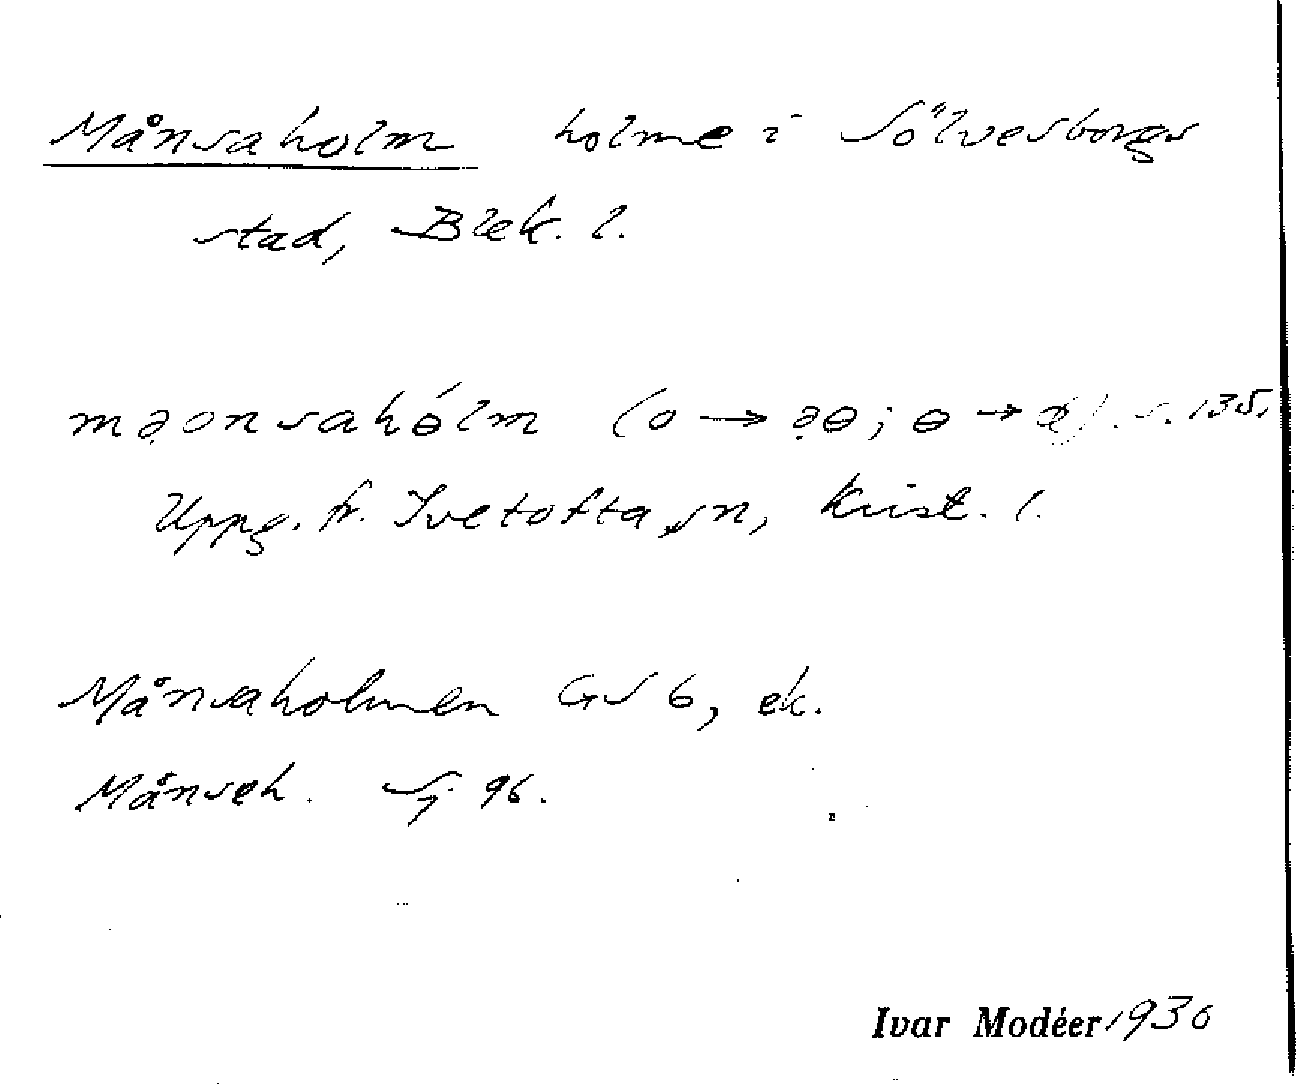 Månsaholm holme i Sölvesborgs
stad, Blek. l.
mạonsahólm (o → ạɵ; ɵ → ). s. 135.
Uppg. fr. Ivetofta sn, Krist. l.
Månsaholmen GS 6, ek.
Månseh. Sj 96.
Ivar Modéer 1930